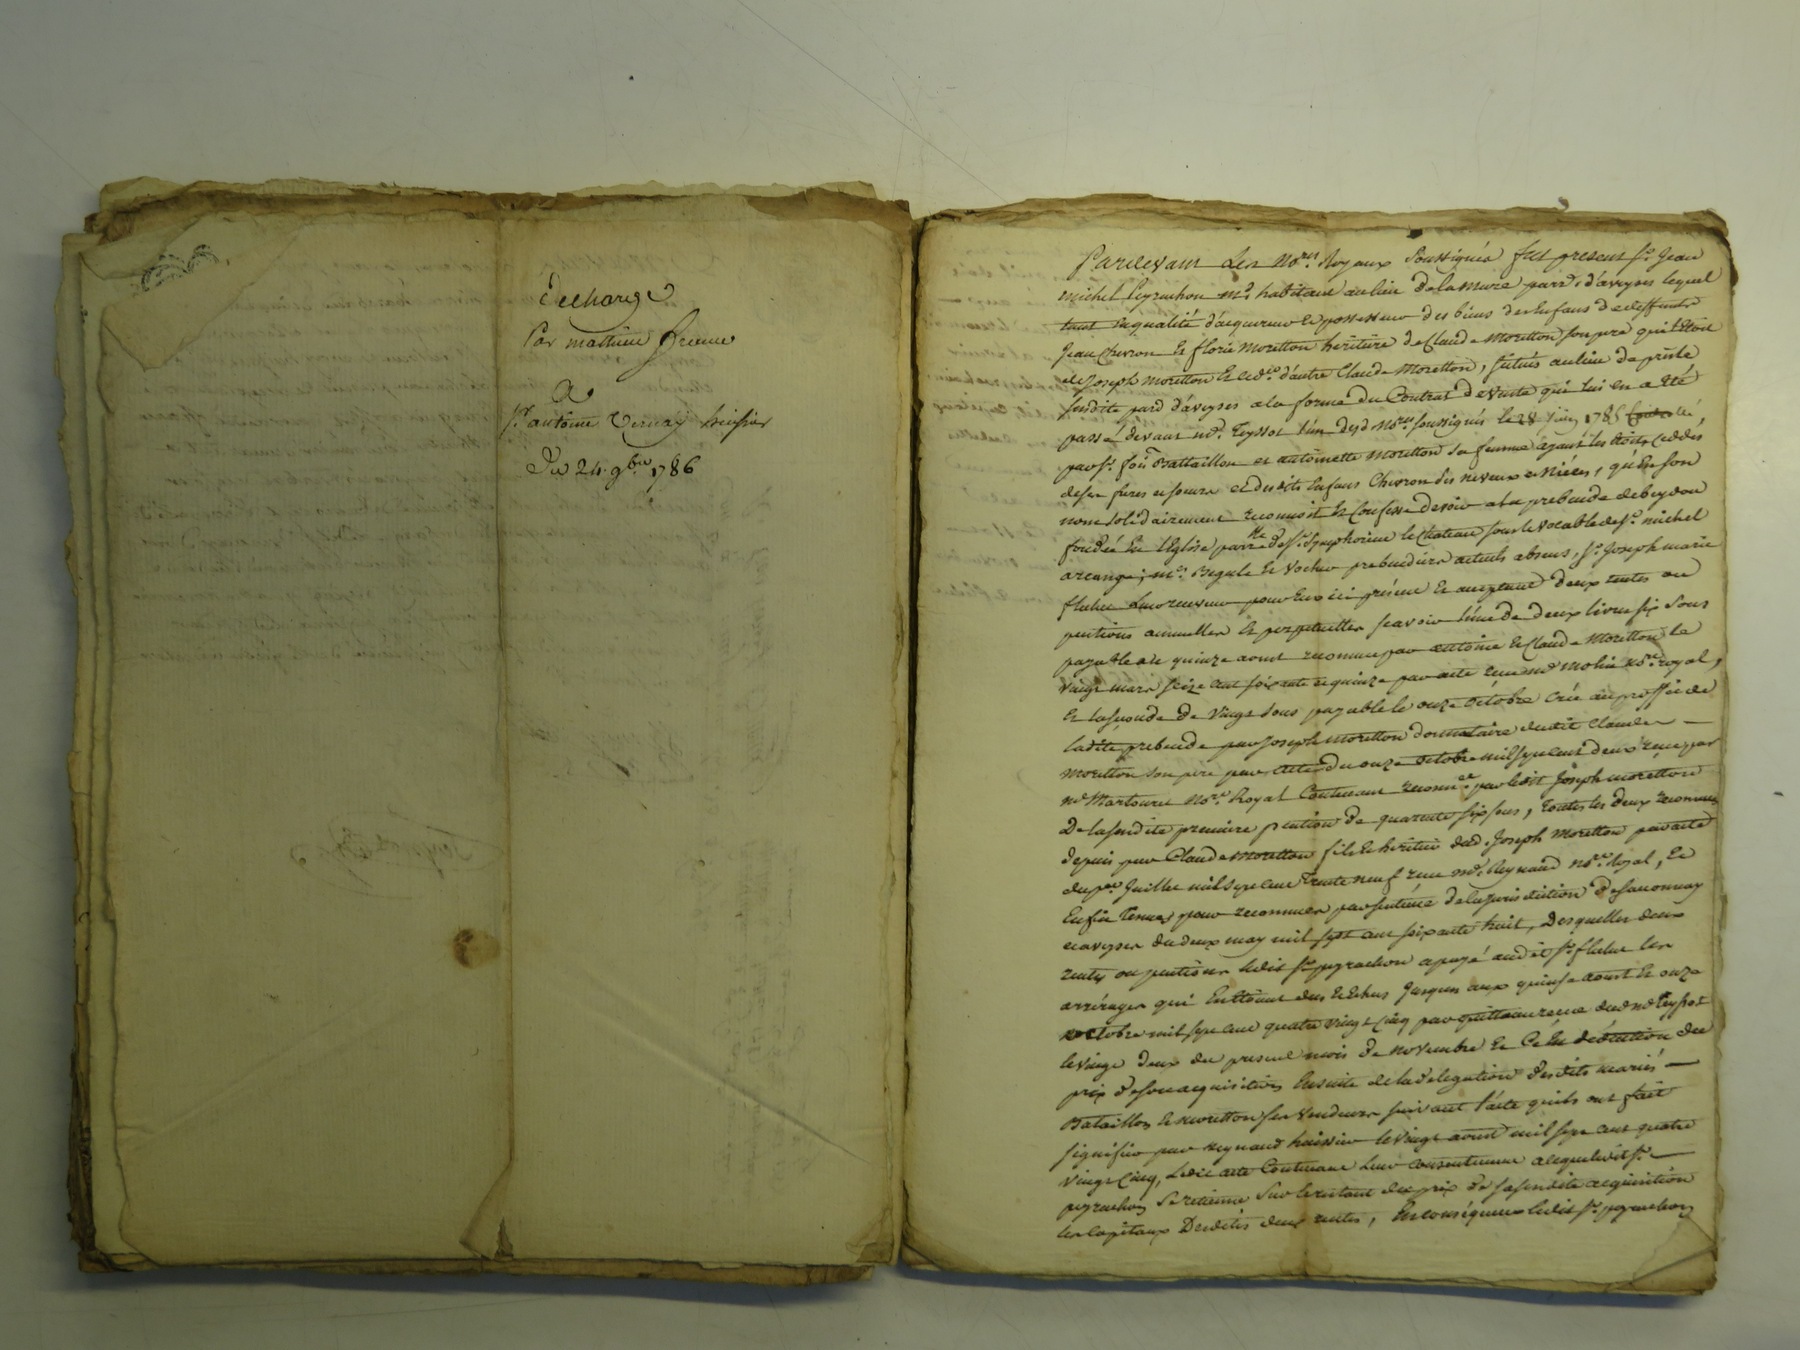 Decharge
Par mathieu
A
Sr. antoine Vernay huissier
Du 24. 9bre 1786
Pardevant Les Nores. Royaux Soussignés fut present Sr. Jean
michel Peyrachon md. habitant au lieu de la mure parr. d'aveyses lequel
tant En qualité d'acquereur et possesseur des biens des Enfans de deffunts
Jean Chevron Et florie Moretton heritiere de Claude Moretton son pere qui l'étoit
de Joseph moretton Et led. d'autre Claude Moretton, situés au lieu de
susdite parr d'aveyses a la forme du Contrat de Vente qui lui en a été
passé devant me. Teyssot l'un desd Nores soussignés le 28 juin 1785
par Sr. Battaillon et antoinette moretton sa femme ayant les droits ceddés
de ses freres et soeurs et desdits Enfans Chevron ses neveux et Niéces, qu'En son
nom solidairement reconnoit Et Confesse devoir a la prebende de
fondée En l'Eglise parrlle de St. Symphorien le chateau sous le vocable de St. michel
arcange; mrs. Begule Et Vocher prebendiers actuels absens, Sr. Joseph marie
fluchet Leur receveur pour Eux ici présent Et acceptant deux rentes ou
pentions annuelles Et perpetuelles scavoir l'une de deux livres six Sous
payable le quinze aout reconnue par antoine Et Claude Moretton le
vingt mars seize cent soixante et quinze par acte reçu me molin Nore royal,
Et la seconde de Vingt Sous payable le onze octobre Crée au proffit de
ladite prebende par Joseph moretton donnataire dudit Claude
Moretton son pere par acte du onze octobre mil sept cent deux reçu par
me Martouret Nore. Royal Contenant reconnce par ledit Joseph moretton
De la susdite premiere pention de quarante six sous, toutes les deux reconnues
depuis par Claude Moretton fils Et heritier dud. Joseph Moretton par acte
du per Juillet mil sept cent trente neuf reçu me. Reynaud Nore. Royal, Et
Enfin tenues pour reconnues par sentence de la jurisdiction de
et aveyses du deux may mil sept cent soixante huit, Desquelles deux
rentes ou pentions ledit Sr. peyrachon a payé audit Sr. fluchet les
arrérages qui En étoient dus Et Echus jusques aux quinze aoust Et onze
octobre mil sept cent quatre vingt Cinq par quittance reçue dud me Teyssot
le vingt deux du present mois de Novembre Et Ce En déduction du
prix de son acquisition Ensuite de la delegation desdits mariés
Bataillon Et moretton ses Vendeurs suivant l'acte qu'ils ont fait
signifier par Reynaud huissier le vingt aoust mil sept cent quatre
vingt Cinq, Ledit acte Contenant Leur consentement a ce que ledit Sr.
peyrachon se retienne Sur le restant du prix de sa susdite acquisition
les Capitaux Desdites deux rentes, En conséquence ledit Sr. peyrachon